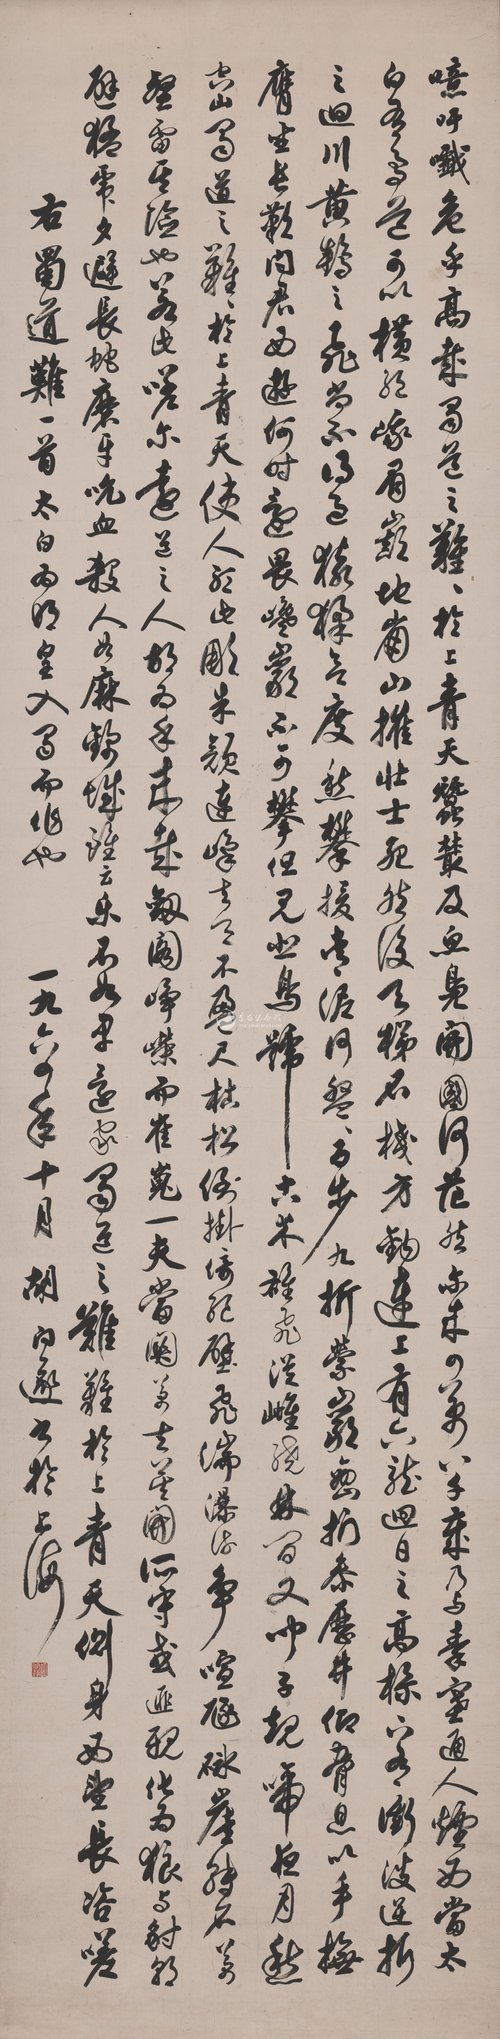 噫吁戲危乎高哉蜀道之難〻於上青天蠶叢及魚鳧開國何茫然爾來四萬八千歲乃與秦塞通人煙西當太
白有鳥道可以橫絕峨眉巔地崩山摧壯士死然後天梯石棧方鉤連上有六龍迴日之高標下有衝波逆折
之迴川黃鶴之飛尚不得過猿猱欲度愁攀援青泥何盤〻百步九折縈巖巒捫參歷井仰脅息以手撫
膺坐長歎問君西遊何時還畏途巉巖不可攀但見悲鳥號古木雄飛從雌繞林間又聞子規啼夜月愁
空山蜀道之難〻於上青天使人聽此凋朱顏連峰去天不盈尺枯松倒掛倚絕壁飛湍瀑流爭喧豗砯崖轉石萬
壑雷其險也若此嗟爾遠道之人胡為乎來哉劍閣崢嶸而崔嵬一夫當關萬夫莫開所守或匪親化為狼與豺朝
避猛虎夕避長蛇磨牙吮血殺人如麻錦城雖云樂不如早還家蜀道之難難於上青天側身西望長咨嗟
右蜀道難一首太白為明皇入蜀而作也 一九六四年十月 胡問遂書於上海